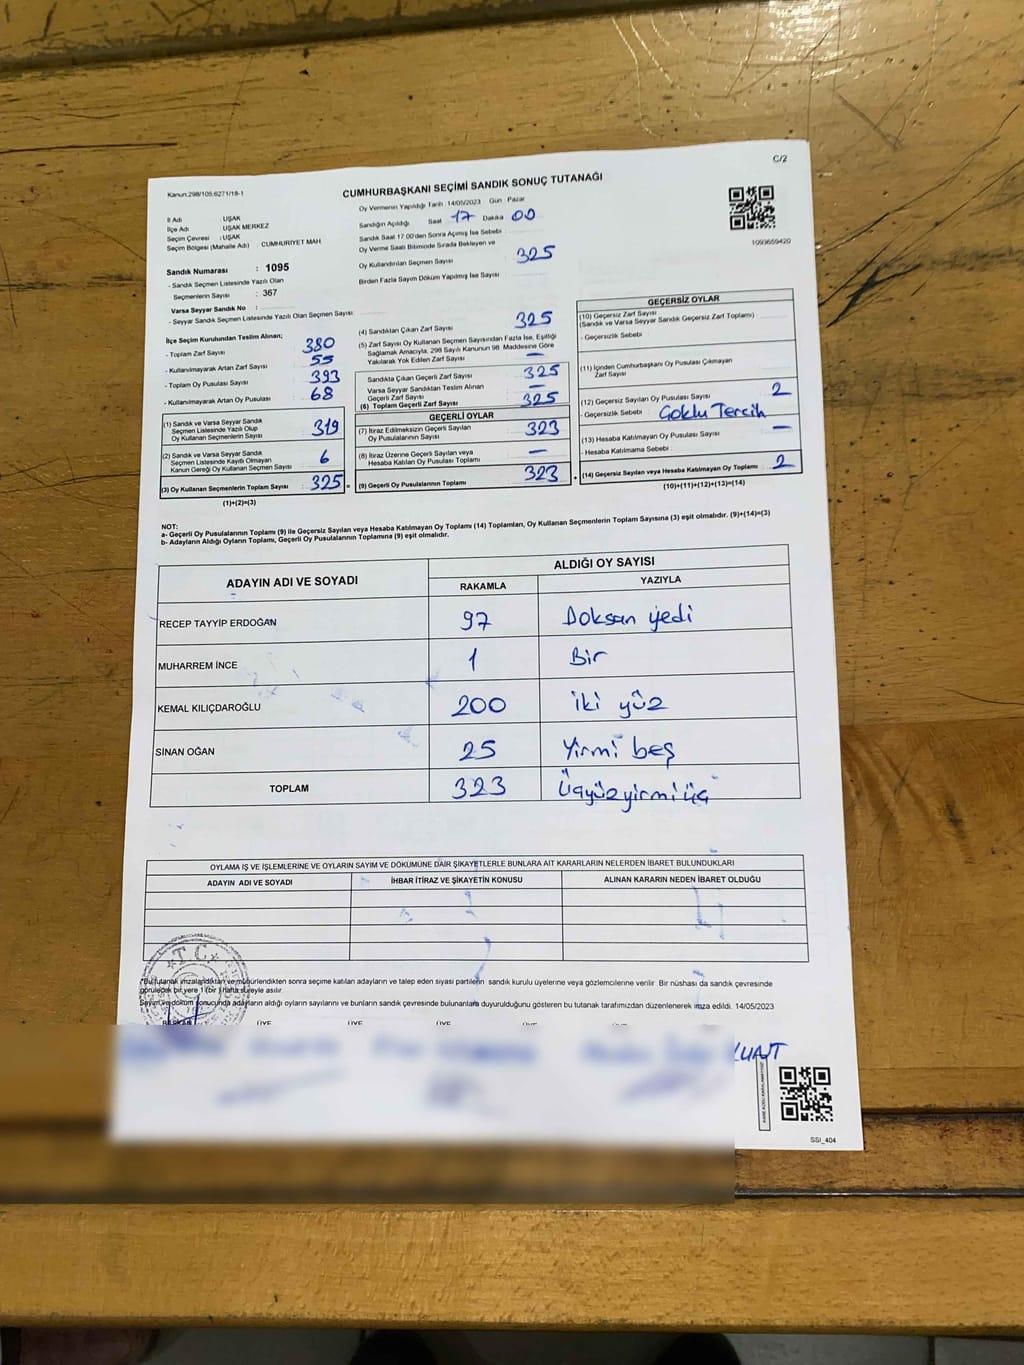 C/2
Kanun:298/105,6271/18-1
CUMHURBAŞKANI SEÇİMİ SANDIK SONUÇ TUTANAĞI
Oy Vermenin Yapıldığı Tarih :14/05/2023 Gün : Pazar
İl Adı : UŞAK
İlçe Adı : UŞAK MERKEZ
Seçim Çevresi : UŞAK
Seçim Bölgesi (Mahalle Adı) : CUMHURİYET MAH.
Sandığın Açıldığı Saat 17 Dakika 00
Sandık Saat 17.00'den Sonra Açılmış İse Sebebi :
Oy Verme Saati Bitiminde Sırada Bekleyen ve
Oy Kullandırılan Seçmen Sayısı : 325
Birden Fazla Sayım Döküm Yapılmış İse Sayısı :
1093659420
Sandık Numarası : 1095
- Sandık Seçmen Listesinde Yazılı Olan
Seçmenlerin Sayısı : 367
Varsa Seyyar Sandık No :
- Seyyar Sandık Seçmen Listesinde Yazılı Olan Seçmen Sayısı:
İlçe Seçim Kurulundan Teslim Alınan;
- Toplam Zarf Sayısı : 380
- Kullanılmayarak Artan Zarf Sayısı : 55
- Toplam Oy Pusulası Sayısı : 393
- Kullanılmayarak Artan Oy Pusulası : 68
(1) Sandık ve Varsa Seyyar Sandık
Seçmen Listesinde Yazılı Olup
Oy Kullanan Seçmenlerin Sayısı : 319
(2) Sandık ve Varsa Seyyar Sandık
Seçmen Listesinde Kayıtlı Olmayan
Kanun Gereği Oy Kullanan Seçmen Sayısı : 6
(3) Oy Kullanan Seçmenlerin Toplam Sayısı : 325
(1)+(2)=(3)
(4) Sandıktan Çıkan Zarf Sayısı : 325
(5) Zarf Sayısı Oy Kullanan Seçmen Sayısından Fazla İse, Eşitliği
Sağlamak Amacıyla, 298 Sayılı Kanunun 98. Maddesine Göre
Yakılarak Yok Edilen Zarf Sayısı : —
Sandıkta Çıkan Geçerli Zarf Sayısı : 325
Varsa Seyyar Sandıktan Teslim Alınan
Geçerli Zarf Sayısı : —
(6) Toplam Geçerli Zarf Sayısı : 325
GEÇERLİ OYLAR
(7) İtiraz Edilmeksizin Geçerli Sayılan
Oy Pusulalarının Sayısı : 323
(8) İtiraz Üzerine Geçerli Sayılan veya
Hesaba Katılan Oy Pusulası Toplamı : —
(9) Geçerli Oy Pusulalarının Toplamı : 323
GEÇERSİZ OYLAR
(10) Geçersiz Zarf Sayısı
(Sandık ve Varsa Seyyar Sandık Geçersiz Zarf Toplamı) :
- Geçersizlik Sebebi :
(11) İçinden Cumhurbaşkanı Oy Pusulası Çıkmayan
Zarf Sayısı :
(12) Geçersiz Sayılan Oy Pusulası Sayısı : 2
- Geçersizlik Sebebi : Çoklu Tercih
(13) Hesaba Katılmayan Oy Pusulası Sayısı : —
- Hesaba Katılmama Sebebi :
(14) Geçersiz Sayılan veya Hesaba Katılmayan Oy Toplamı : 2
(10)+(11)+(12)+(13)=(14)
NOT:
a- Geçerli Oy Pusulalarının Toplamı (9) ile Geçersiz Sayılan veya Hesaba Katılmayan Oy Toplamı (14) Toplamları, Oy Kullanan Seçmenlerin Toplam Sayısına (3) eşit olmalıdır. (9)+(14)=(3)
b- Adayların Aldığı Oyların Toplamı, Geçerli Oy Pusulalarının Toplamına (9) eşit olmalıdır.
ADAYIN ADI VE SOYADI ALDIĞI OY SAYISI
RAKAMLA YAZIYLA
RECEP TAYYİP ERDOĞAN 97 Doksan yedi
MUHARREM İNCE 1 Bir
KEMAL KILIÇDAROĞLU 200 iki yüz
SİNAN OĞAN 25 Yirmi beş
TOPLAM 323 Üçyüzyirmi üç
OYLAMA İŞ VE İŞLEMLERİNE VE OYLARIN SAYIM VE DÖKÜMÜNE DAİR ŞİKAYETLERLE BUNLARA AİT KARARLARIN NELERDEN İBARET BULUNDUKLARI
ADAYIN ADI VE SOYADI İHBAR İTİRAZ VE ŞİKAYETİN KONUSU ALINAN KARARIN NEDEN İBARET OLDUĞU
T.C.
*Bu tutanak imzalandıktan ve mühürlendikten sonra seçime katılan adayların ve talep eden siyasi partilerin sandık kurulu üyelerine veya gözlemcilerine verilir. Bir nüshası da sandık çevresinde
görülecek bir yere 1 (bir) hafta süreyle asılır.
Seçim ve döküm sonucunda adayların aldığı oyların sayılarını ve bunların sandık çevresinde bulunanlara duyurulduğunu gösteren bu tutanak tarafımızdan düzenlenerek imza edildi. 14/05/2023
BAŞKAN ÜYE ÜYE ÜYE ÜYE ÜYE
SSI_404